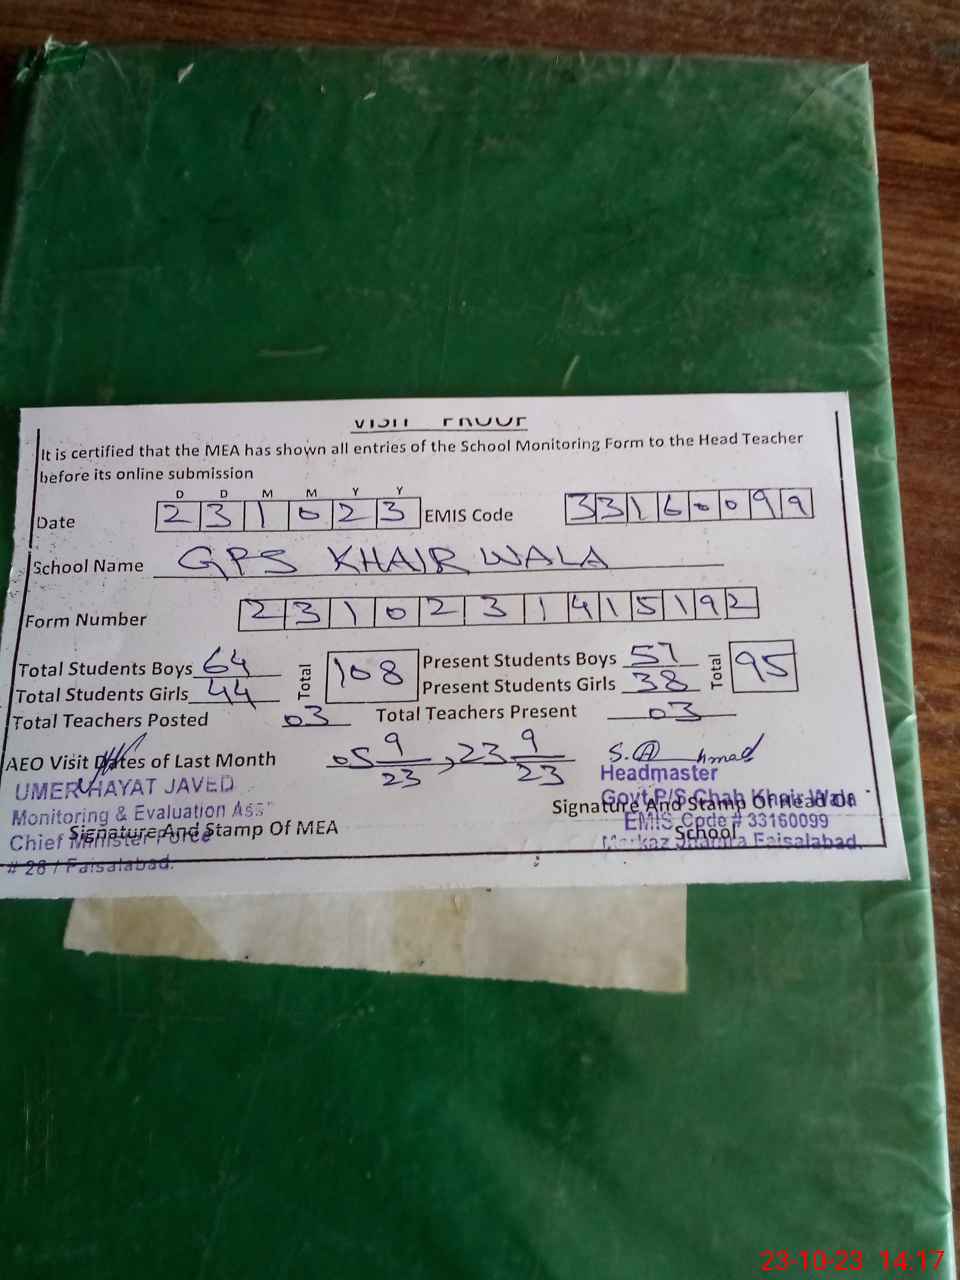 VISIT PROOF
It is certified that the MEA has shown all entries of the School Monitoring Form to the Head Teacher
before its online submission
D D M M Y Y
Date 2 3 1 0 2 3 EMIS Code 3 3 1 6 0 0 9 9
School Name GPS KHAIR WALA
Form Number 2 3 1 0 2 3 1 4 1 5 1 9 2
Total Students Boys 64 Total 108 Present Students Boys 57 Total 95
Total Students Girls 44 Present Students Girls 38
Total Teachers Posted 03 Total Teachers Present 03
AEO Visit Dates of Last Month 05 9/23, 23 9/23 S. Ahmad
UMER HAYAT JAVED Headmaster
Monitoring & Evaluation Ass Govt. P/S Chah Khair Wala
Signature And Stamp Of Head Of
Chief Minister Force EMIS Code # 33160099
Signature And Stamp Of MEA School
# 28 / Faisalabad. Markaz Faisalabad.
23-10-23 14:17